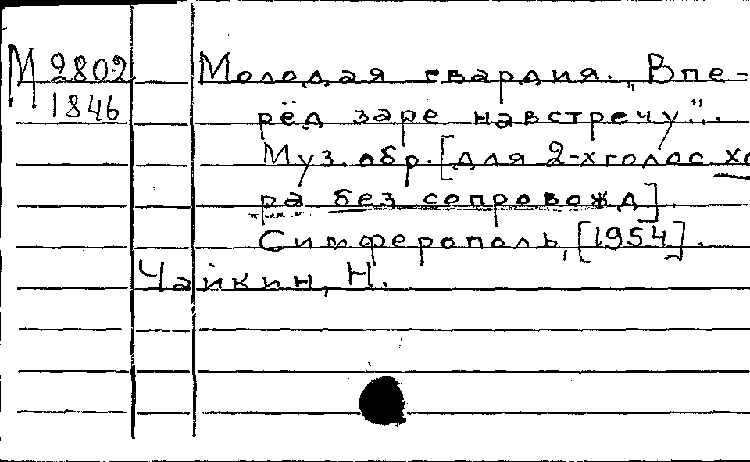 М 2802
1846
Молодая гвардия. „Впе-
рёд заре навстречу".
Муз. обр. [для 2-хголос. хо
ра без сопровожд].
Симферополь, [1954].
Чайкин, Н.